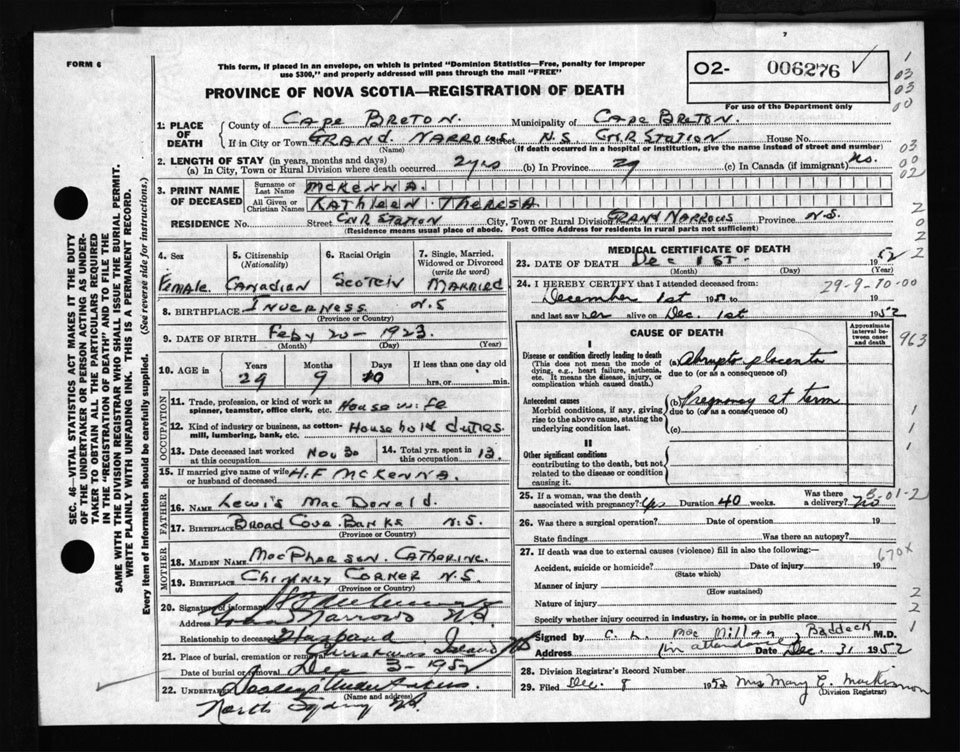 FORM 6
This form, if placed in an envelope, on which is printed "Dominion Statistics—Free, penalty for improper use $300," and properly addressed will pass through the mail "FREE"
02- 006276
For use of the Department only
PROVINCE OF NOVA SCOTIA—REGISTRATION OF DEATH
SEC. 46—VITAL STATISTICS ACT MAKES IT THE DUTY
OF THE UNDERTAKER OR PERSON ACTING AS UNDER-
TAKER TO OBTAIN ALL THE PARTICULARS REQUIRED
IN THE "REGISTRATION OF DEATH" AND TO FILE THE
SAME WITH THE DIVISION REGISTRAR WHO SHALL ISSUE THE BURIAL PERMIT.
WRITE PLAINLY WITH UNFADING INK. THIS IS A PERMANENT RECORD.
Every item of information should be carefully supplied. (See reverse side for instructions.)
1. PLACE OF DEATH
County of CAPE BRETON. Municipality of CAPE BRETON.
If in City or Town GRAND NARROWS Street N.S CNR STATION House No.
(Name) (If death occurred in a hospital or institution, give the name instead of street and number)
2. LENGTH OF STAY (in years, months and days)
(a) In City, Town or Rural Division where death occurred 2 yrs (b) In Province 29 (c) In Canada (if immigrant)
3. PRINT NAME OF DECEASED
Surname or Last Name McKENNA.
All Given or Christian Names KATHLEEN THERESA
RESIDENCE No. Street CNR STATION City, Town or Rural Division GRAND NARROWS Province N.S.
(Residence means usual place of abode. Post Office Address for residents in rural parts not sufficient)
4. Sex FEMALE
5. Citizenship (Nationality) CANADIAN
6. Racial Origin SCOTCH
7. Single, Married, Widowed or Divorced (write the word) MARRIED
8. BIRTHPLACE INVERNESS N.S
(Province or Country)
9. DATE OF BIRTH Feby 20 - 1923.
(Month) (Day) (Year)
10. AGE in Years 29 Months 9 Days 10 If less than one day old hrs. or min.
OCCUPATION
11. Trade, profession, or kind of work as spinner, teamster, office clerk, etc. House wife
12. Kind of industry or business, as cotton-mill, lumbering, bank, etc. Household duties
13. Date deceased last worked at this occupation Nov 30
14. Total yrs. spent in this occupation 13.
15. If married give name of wife or husband of deceased H.F McKENNA.
FATHER
16. NAME Lewis MacDonald.
17. BIRTHPLACE BROAD COVE BANKS N.S.
(Province or Country)
MOTHER
18. MAIDEN NAME MacPherson Catherine.
19. BIRTHPLACE CHIMNEY CORNER N.S.
(Province or Country)
20. Signature of informant
Address Narrows N.S.
Relationship to deceased Husband
21. Place of burial, cremation or removal Island NS
Date of burial or removal Dec 3 - 1952
22. UNDERTAKER Undertakers.
(Name and address)
North Sydney N.S.
MEDICAL CERTIFICATE OF DEATH
23. DATE OF DEATH Dec 1ST- 1952
(Month) (Day) (Year)
24. I HEREBY CERTIFY that I attended deceased from:
29-9-10-00
December 1st 1952 to
and last saw her alive on Dec. 1st 1952
CAUSE OF DEATH
Approximate interval between onset and death
963
I
Disease or condition directly leading to death
(This does not mean the mode of dying, e.g., heart failure, asthenia, etc. It means the disease, injury, or complication which caused death.)
(a) Abruptio placenta
due to (or as a consequence of)
Antecedent causes
Morbid conditions, if any, giving rise to the above cause, stating the underlying condition last.
(b) Pregnancy at term
due to (or as a consequence of)
(c)
II
Other significant conditions
contributing to the death, but not related to the disease or condition causing it.
25. If a woman, was the death associated with pregnancy? Yes Duration 40 weeks. Was there a delivery? No
26. Was there a surgical operation? Date of operation 19
State findings Was there an autopsy?
27. If death was due to external causes (violence) fill in also the following:—
670X
Accident, suicide or homicide? Date of injury 19
(State which)
Manner of injury
(How sustained)
Nature of injury
Specify whether injury occurred in industry, in home, or in public place
Signed by C. L. MacMillan, Baddeck M.D.
Address (in attendance) Date Dec. 31 1952
28. Division Registrar's Record Number
29. Filed Dec. 8 1952 Mrs Mary E. MacKinnon
(Division Registrar)